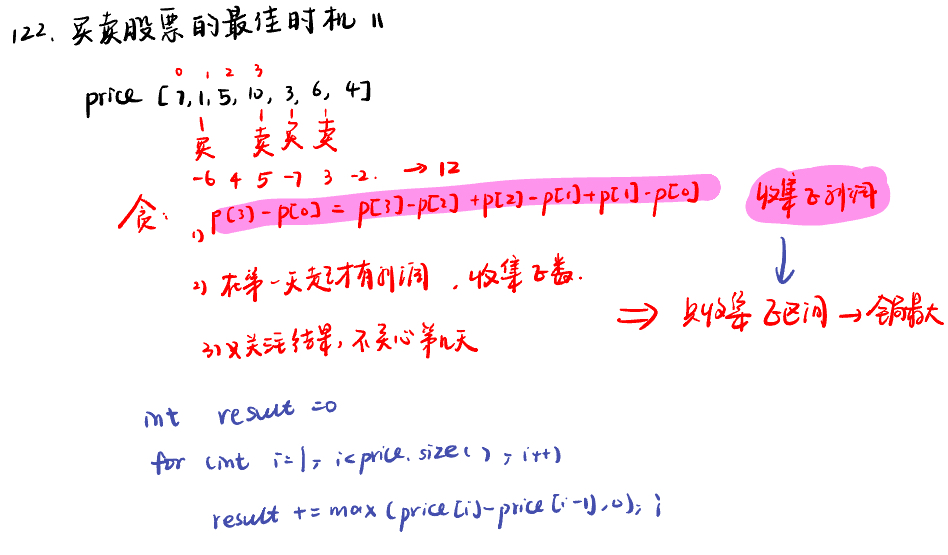 122. 买卖股票的最佳时机 II
0 1 2 3
price [7,1,5,10,3,6,4]
买 卖 买 卖
-6 4 5 -7 3 -2. → 12
贪:
1) p[3]-p[0] = p[3]-p[2]+p[2]-p[1]+p[1]-p[0]
收集正利润
2) 在第一天起才有利润,收集正数.
⇒ 只收集正区间→全局最大
3) 只关注结果,不关心第几天
int result =0
for (int i=1; i<price.size(); i++)
result += max(price[i]-price[i-1],0);;